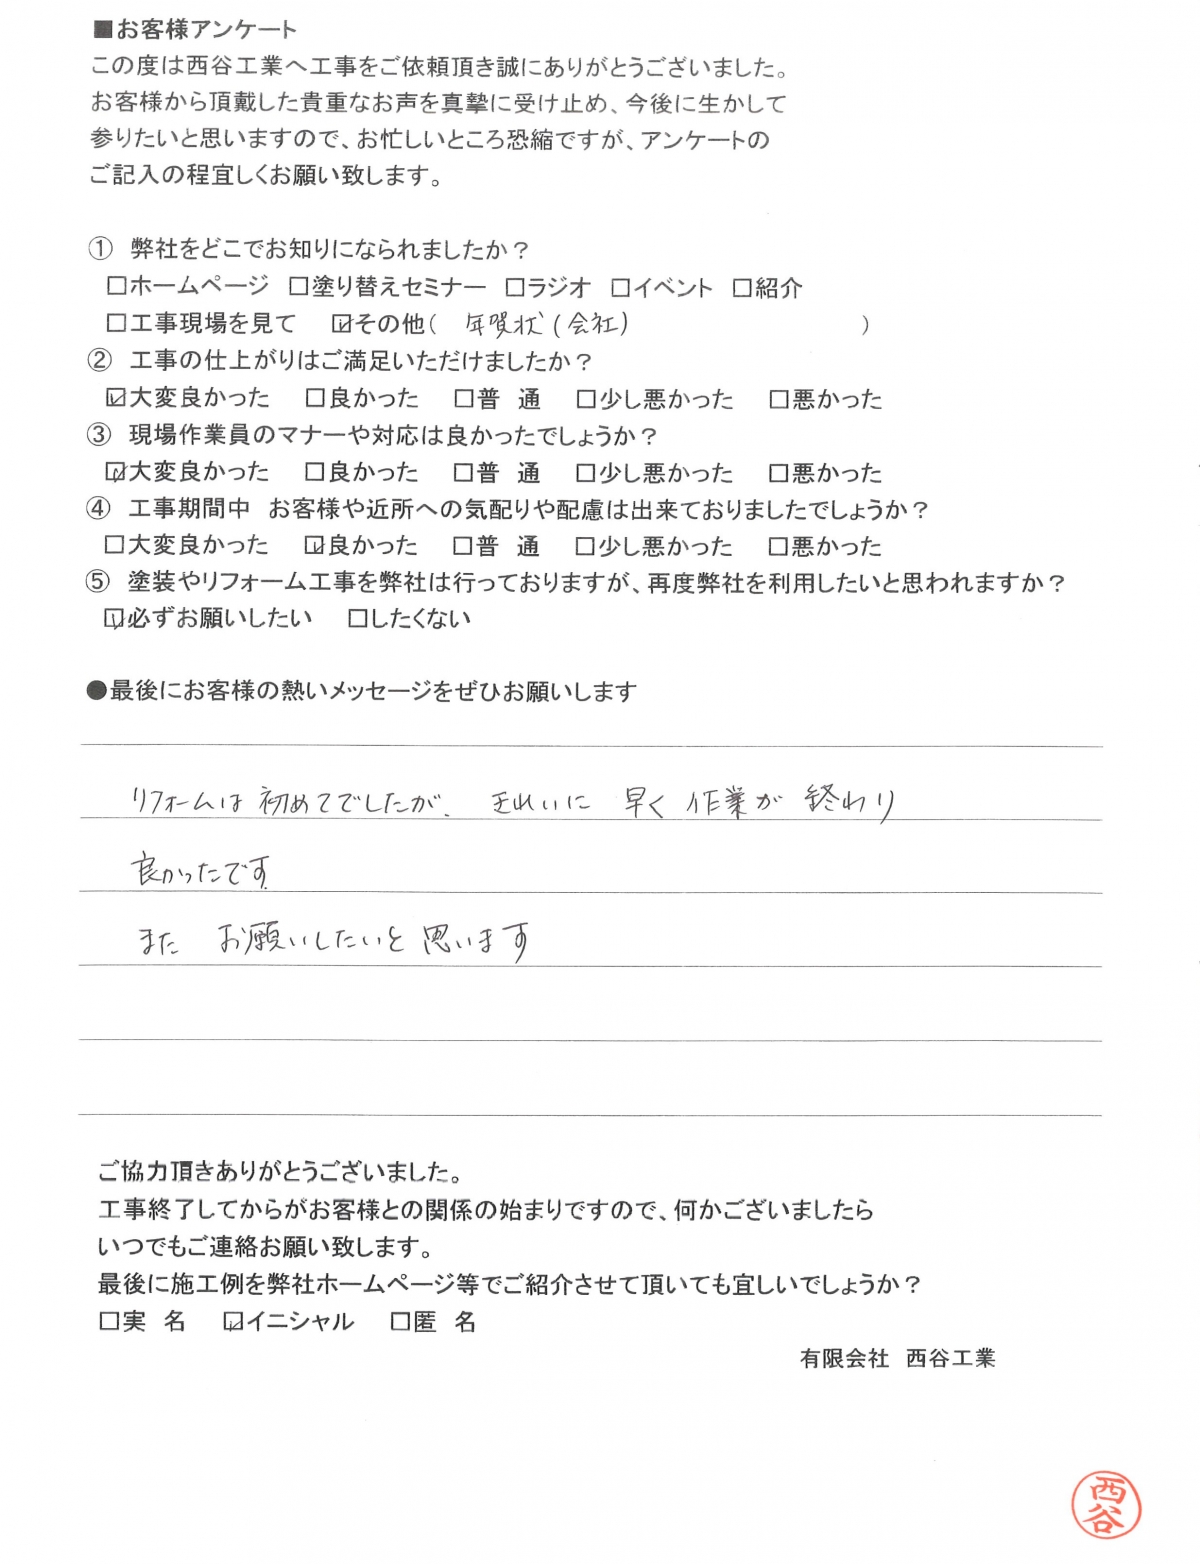 ■お客様アンケート
この度は西谷工業へ工事をご依頼頂き誠にありがとうございました。
お客様から頂戴した貴重なお声を真摯に受け止め、今後に生かして
参りたいと思いますので、お忙しいところ恐縮ですが、アンケートの
ご記入の程宜しくお願い致します。
① 弊社をどこでお知りになられましたか？
□ホームページ □塗り替えセミナー □ラジオ □イベント □紹介
□工事現場を見て ☑その他（ 年賀状（会社） ）
② 工事の仕上がりはご満足いただけましたか？
☑大変良かった □良かった □普 通 □少し悪かった □悪かった
③ 現場作業員のマナーや対応は良かったでしょうか？
☑大変良かった □良かった □普 通 □少し悪かった □悪かった
④ 工事期間中 お客様や近所への気配りや配慮は出来ておりましたでしょうか？
□大変良かった ☑良かった □普 通 □少し悪かった □悪かった
⑤ 塗装やリフォーム工事を弊社は行っておりますが、再度弊社を利用したいと思われますか？
☑必ずお願いしたい □したくない
●最後にお客様の熱いメッセージをぜひお願いします
リフォームは初めてでしたが、きれいに 早く作業が終わり
良かったです
また お願いしたいと思います
ご協力頂きありがとうございました。
工事終了してからがお客様との関係の始まりですので、何かございましたら
いつでもご連絡お願い致します。
最後に施工例を弊社ホームページ等でご紹介させて頂いても宜しいでしょうか？
□実 名 ☑イニシャル □匿 名
有限会社 西谷工業
西谷